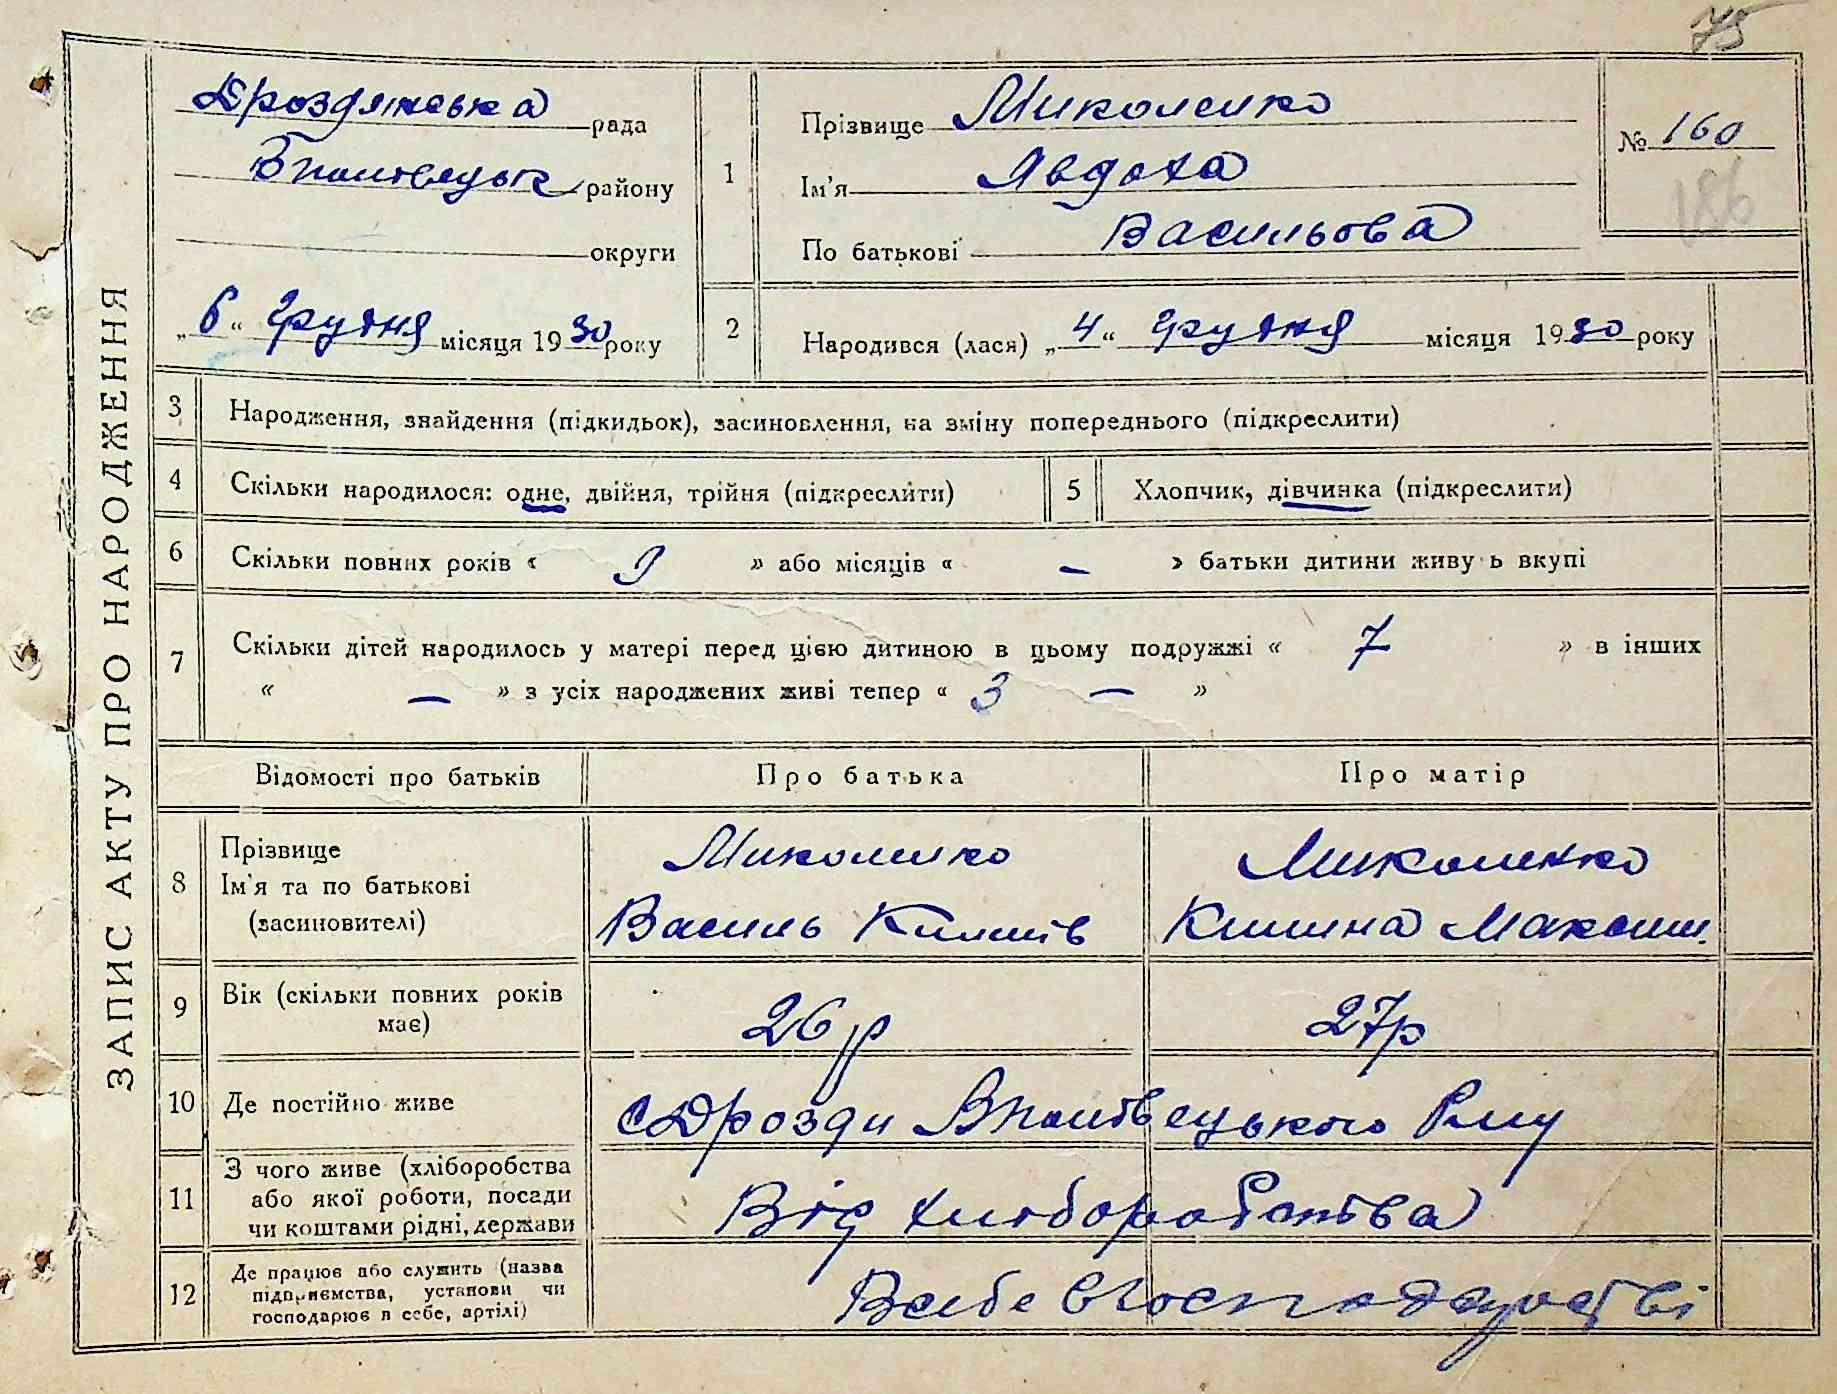 75
ЗАПИС АКТУ ПРО НАРОДЖЕННЯ
Дроздянська рада
району
округи
„6“ Грудня місяця 1930 року
1
Прізвище Миколенко
Ім'я Явдоха
По батькові Васильова
№ 160
186
2
Народився (лася) „4“ грудня місяця 1930 року
3 Народження, знайдення (підкидьок), засиновлення, на зміну попереднього (підкреслити)
4 Скільки народилося: одне, двійня, трійня (підкреслити)
5 Хлопчик, дівчинка (підкреслити)
6 Скільки повних років « 9 » або місяців « — » батьки дитини живуть вкупі
7 Скільки дітей народилось у матері перед цією дитиною в цьому подружжі « 7 » в інших
« — » з усіх народжених живі тепер « 3 — »
Відомості про батьків Про батька Про матір
8 Прізвище
Ім'я та по батькові
(засиновителі)
Миколенко
Василь
Миколенко
Максим.
9 Вік (скільки повних років
має)
26 р
27р
10 Де постійно живе
с Дрозди Рну
11 З чого живе (хліборобства
або якої роботи, посади
чи коштами рідні, держави
Від хліборобства
12 Де працює або служить (назва
підприємства, установи чи
господарює в себе, артілі)
Всебе в господарстві